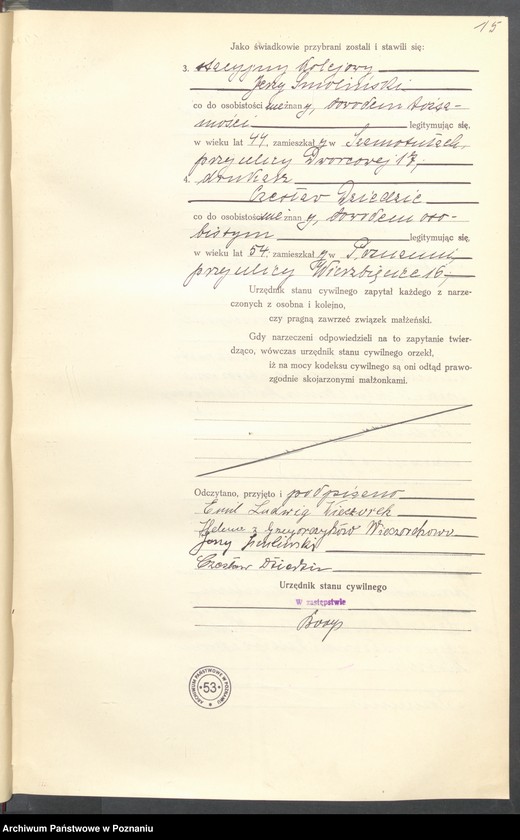 15
Jako świadkowie przybrani zostali i stawili się:
3. stacyjny kolejowy
Jerzy Smoliński
co do osobistości nie znany, dowodem tożsa-
mości legitymując się,
w wieku lat 44, zamieszkały w Szamotułach,
przy ulicy Dworcowej 17,
4. drukarz
Czesław Dziedzic
co do osobistości nie znany, dowodem oso-
bistym legitymując się,
w wieku lat 54, zamieszkały w Poznaniu,
przy ulicy Wierzbięcice 16,
Urzędnik stanu cywilnego zapytał każdego z narze-
czonych z osobna i kolejno,
czy pragną zawrzeć związek małżeński.
Gdy narzeczeni odpowiedzieli na to zapytanie twier-
dząco, wówczas urzędnik stanu cywilnego orzekł,
iż na mocy kodeksu cywilnego są oni odtąd prawo-
zgodnie skojarzonymi małżonkami.
Odczytano, przyjęto i podpisano
Emil Ludwig Wieczorek
Helena z Grzegorczyków Wieczorkowa
Jerzy Smoliński
Czesław Dziedzic
Urzędnik stanu cywilnego
W zastępstwie
ARCHIWUM PAŃSTWOWE W POZNANIU
53
Archiwum Państwowe w Poznaniu